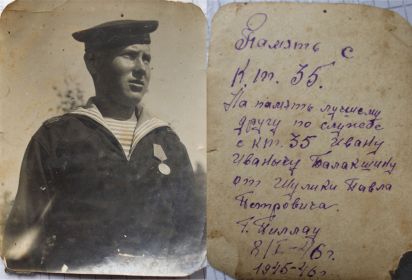 Память с
К.т. 35.
На память лучшему
другу по службе
с к.т. 35 Ивану
Иванычу Балакшину
от Шулики Павла
Петровича.
г. Пиллау
8/I-46г.
1945-46г.